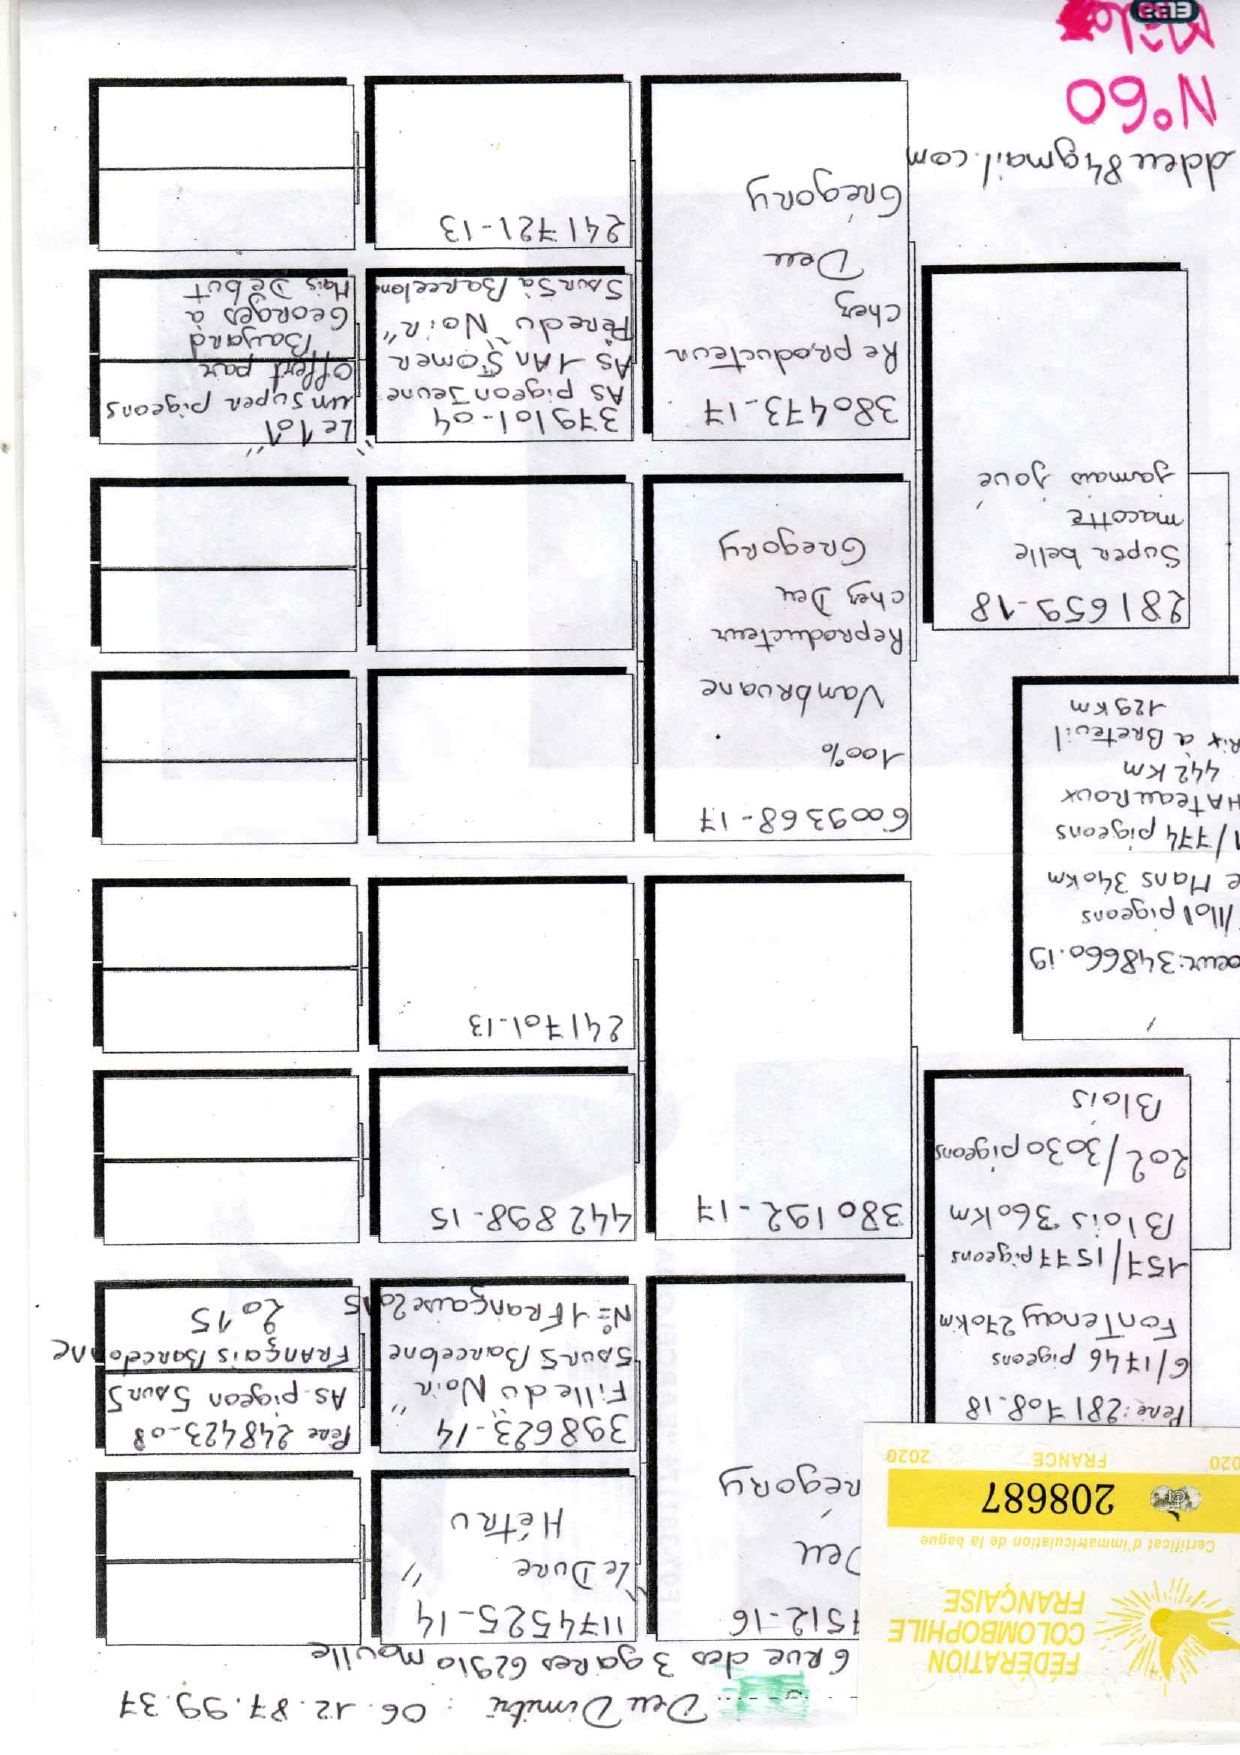 Deu Dimitri : 06.12.87.99.37
6 Rue des 3 gares 62910 moulle
FÉDÉRATION
COLOMBOPHILE
FRANÇAISE
Certificat d'immatriculation de la bague
208687
020 FRANCE 2020
Père: 281708.18
6/1746 pigeons
Fontenay 270km
157/1577 pigeons
Blois 360km
202/3030 pigeons
Blois
oeur: 348660.19
/1101 pigeons
e Mans 340km
1/774 pigeons
HATeauRoux
442 Km
rix à Breteuil
129 Km
281659-18
Super belle
macotte
jamais joué
ddeu84gmail.com
N°60
7512-16
Deu
régory
380192-17
6009368-17
100%
Vambruane
Reproducteur
chez Deu
Gregory
380473-17
Reproducteur
chez
Deu
Grégory
1174525-14
"Le Dure"
Hétru
398623-14
Fille du "Noir"
5 sur 5 Barcelone
N°1 Française 2015
442898-15
241701-13
379101-04
As pigeon Jeune
As 1An Somer
Père du "Noir"
5 sur 5 à Barcelone
241721-13
Père 248423-08
As pigeon 5 sur 5
Français Barcelone
2015
Le "101"
un super pigeons
offert par
Bayard
Georges à
Mais Début